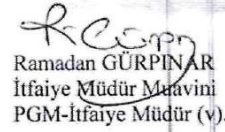 R. Gürp
Ramadan GÜRPINAR
İtfaiye Müdür Muavini
PGM-İtfaiye Müdür (v).